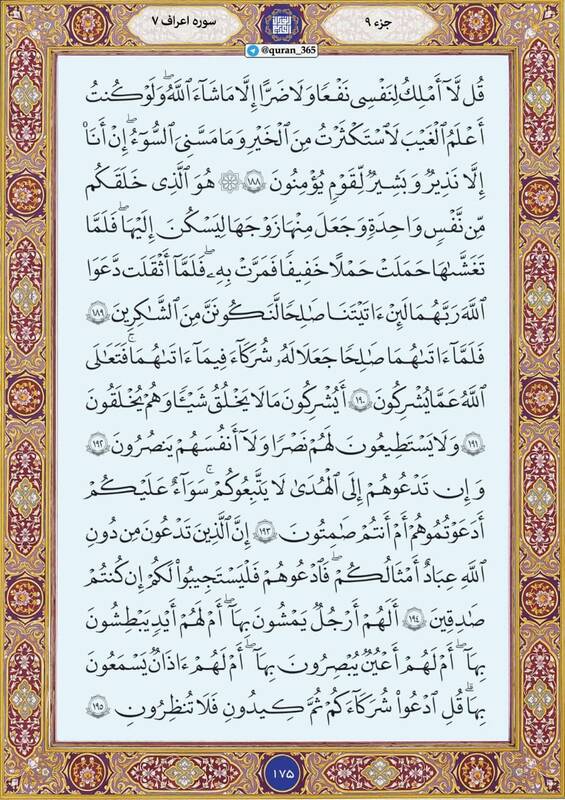 جزء ۹
سوره اعراف ۷
@quran_365
قُل لَّآ أَمْلِكُ لِنَفْسِى نَفْعًا وَلَا ضَرًّا إِلَّا مَا شَآءَ ٱللَّهُ ۚ وَلَوْ كُنتُ
أَعْلَمُ ٱلْغَيْبَ لَٱسْتَكْثَرْتُ مِنَ ٱلْخَيْرِ وَمَا مَسَّنِىَ ٱلسُّوٓءُ ۚ إِنْ أَنَا۠
إِلَّا نَذِيرٌ وَبَشِيرٌ لِّقَوْمٍ يُؤْمِنُونَ ۱۸۸ ۞ هُوَ ٱلَّذِى خَلَقَكُم
مِّن نَّفْسٍ وَٰحِدَةٍ وَجَعَلَ مِنْهَا زَوْجَهَا لِيَسْكُنَ إِلَيْهَا ۖ فَلَمَّا
تَغَشَّىٰهَا حَمَلَتْ حَمْلًا خَفِيفًا فَمَرَّتْ بِهِۦ ۖ فَلَمَّآ أَثْقَلَت دَّعَوَا
ٱللَّهَ رَبَّهُمَا لَئِنْ ءَاتَيْتَنَا صَٰلِحًا لَّنَكُونَنَّ مِنَ ٱلشَّٰكِرِينَ ۱۸۹
فَلَمَّآ ءَاتَىٰهُمَا صَٰلِحًا جَعَلَا لَهُۥ شُرَكَآءَ فِيمَآ ءَاتَىٰهُمَا ۚ فَتَعَٰلَى
ٱللَّهُ عَمَّا يُشْرِكُونَ ۱۹۰ أَيُشْرِكُونَ مَا لَا يَخْلُقُ شَيْـًٔا وَهُمْ يُخْلَقُونَ
۱۹۱ وَلَا يَسْتَطِيعُونَ لَهُمْ نَصْرًا وَلَآ أَنفُسَهُمْ يَنصُرُونَ ۱۹۲
وَإِن تَدْعُوهُمْ إِلَى ٱلْهُدَىٰ لَا يَتَّبِعُوكُمْ ۚ سَوَآءٌ عَلَيْكُمْ
أَدَعَوْتُمُوهُمْ أَمْ أَنتُمْ صَٰمِتُونَ ۱۹۳ إِنَّ ٱلَّذِينَ تَدْعُونَ مِن دُونِ
ٱللَّهِ عِبَادٌ أَمْثَالُكُمْ ۖ فَٱدْعُوهُمْ فَلْيَسْتَجِيبُوا۟ لَكُمْ إِن كُنتُمْ
صَٰدِقِينَ ۱۹۴ أَلَهُمْ أَرْجُلٌ يَمْشُونَ بِهَآ ۖ أَمْ لَهُمْ أَيْدٍ يَبْطِشُونَ
بِهَآ ۖ أَمْ لَهُمْ أَعْيُنٌ يُبْصِرُونَ بِهَآ ۖ أَمْ لَهُمْ ءَاذَانٌ يَسْمَعُونَ
بِهَا ۗ قُلِ ٱدْعُوا۟ شُرَكَآءَكُمْ ثُمَّ كِيدُونِ فَلَا تُنظِرُونِ ۱۹۵
۱۷۵